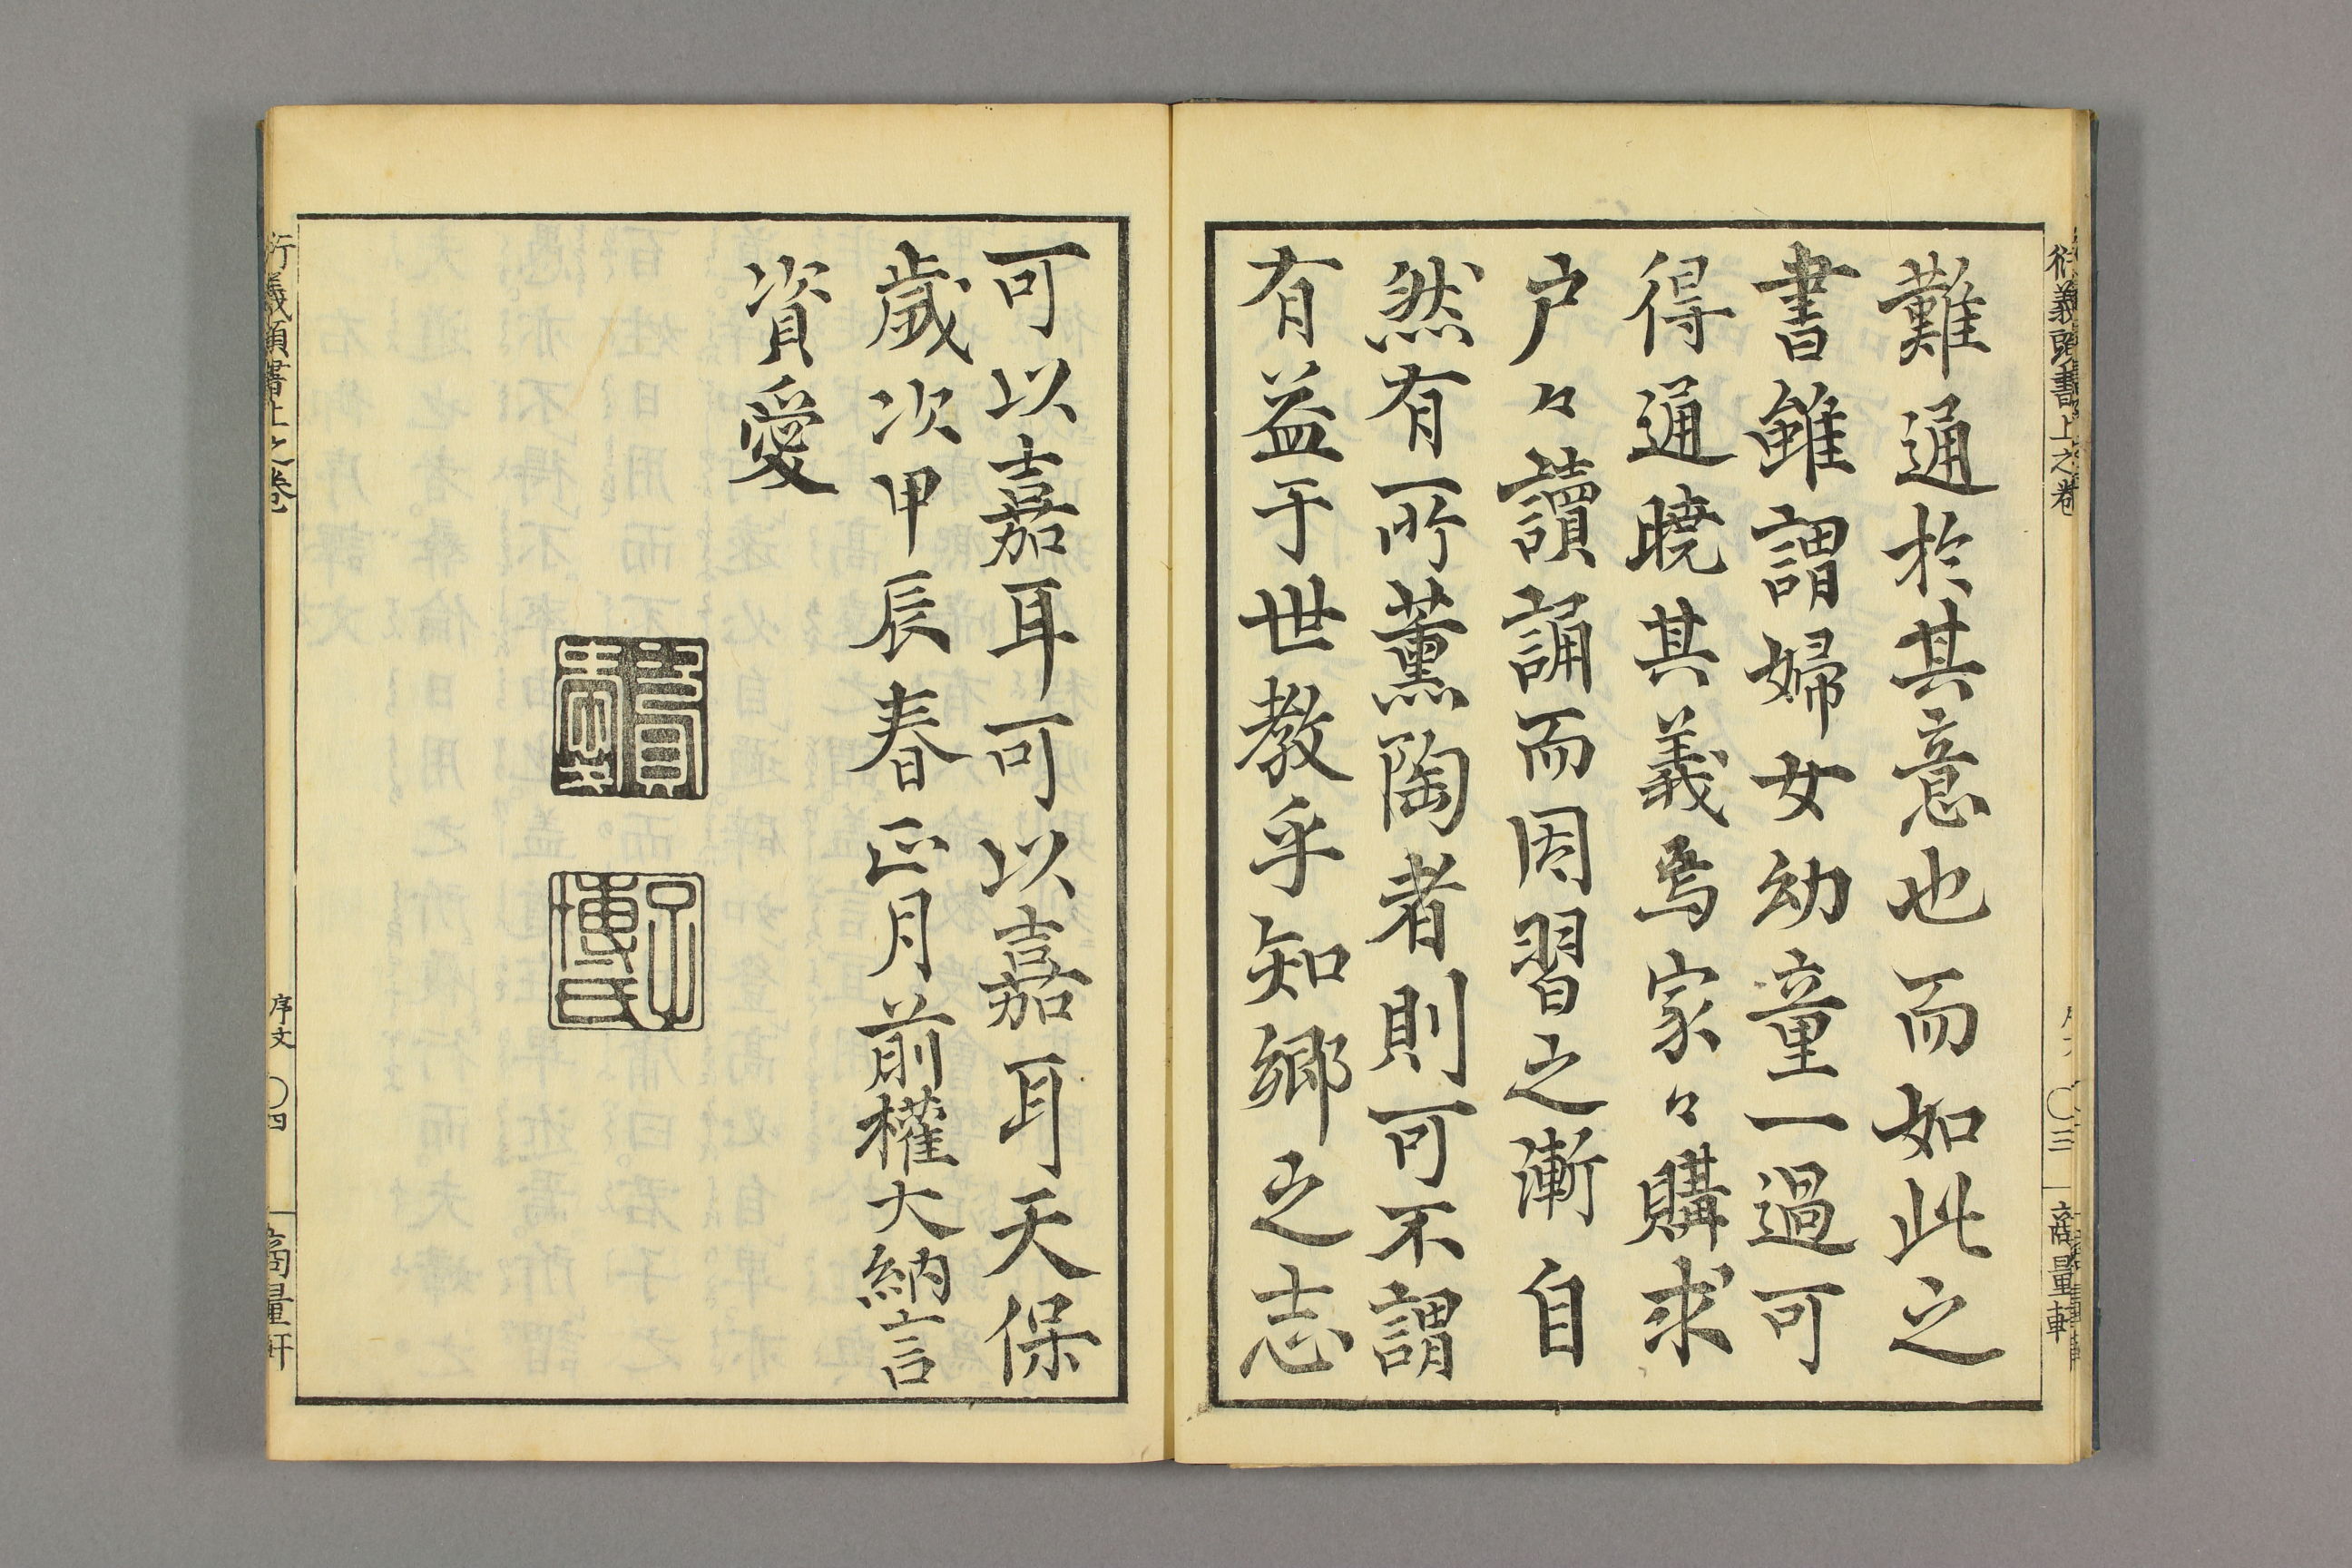 衍義頭書上之卷
〇三
商量軒
難通於其意也而如此之
書雖謂婦女幼童一過可
得通曉其義焉家々購求
户々讀誦而因習之漸自
然有所薰陶者則可不謂
有益于世教乎知鄉之志
可以嘉耳可以嘉耳天保
歲次甲辰春正月前權大納言
資愛
衍義頭書上之卷
序文
〇四
商量軒